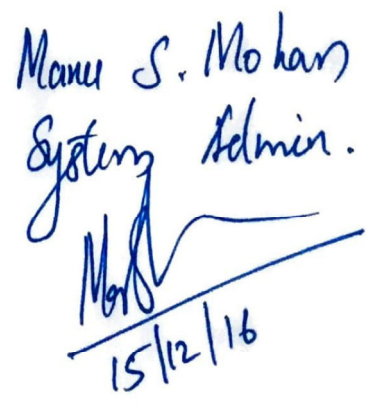 Manu S. Mohan
System Admin.
15/12/16